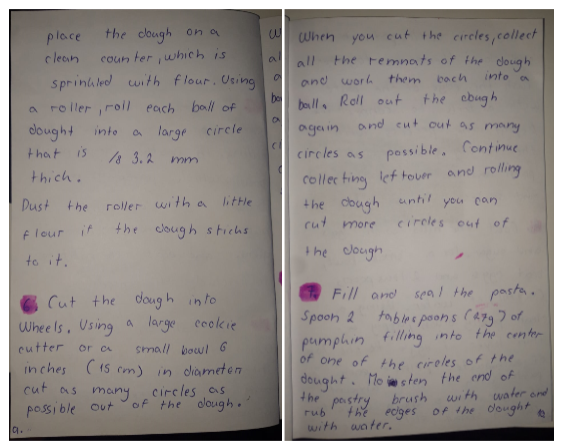 place the dough on a
clean counter, which is
sprinkled with flour. Using
a roller, roll each ball of
dought into a large circle
that is /8 3.2 mm
thich.
Dust the roller with a little
flour if the dough sticks
to it.
6. Cut the dough into
Wheels. Using a large cookie
cutter or a small bowl 6
inches (15 cm) in diameter
cut as many circles as
possible out of the dough.
a.
When you cut the circles, collect
all the remnats of the dough
and work them bach into a
ball. Roll out the dough
again and cut out as many
circles as possible. Continue
collecting leftover and rolling
the dough until you can
cut more circles out of
the dough
7. Fill and seal the pasta.
Spoon 2 tablespoons (27g) of
pumpkin filling into the center
of one of the circles of the
dought. Moisten the end of
the pastry brush with water and
rub the edges of the dought
with water.